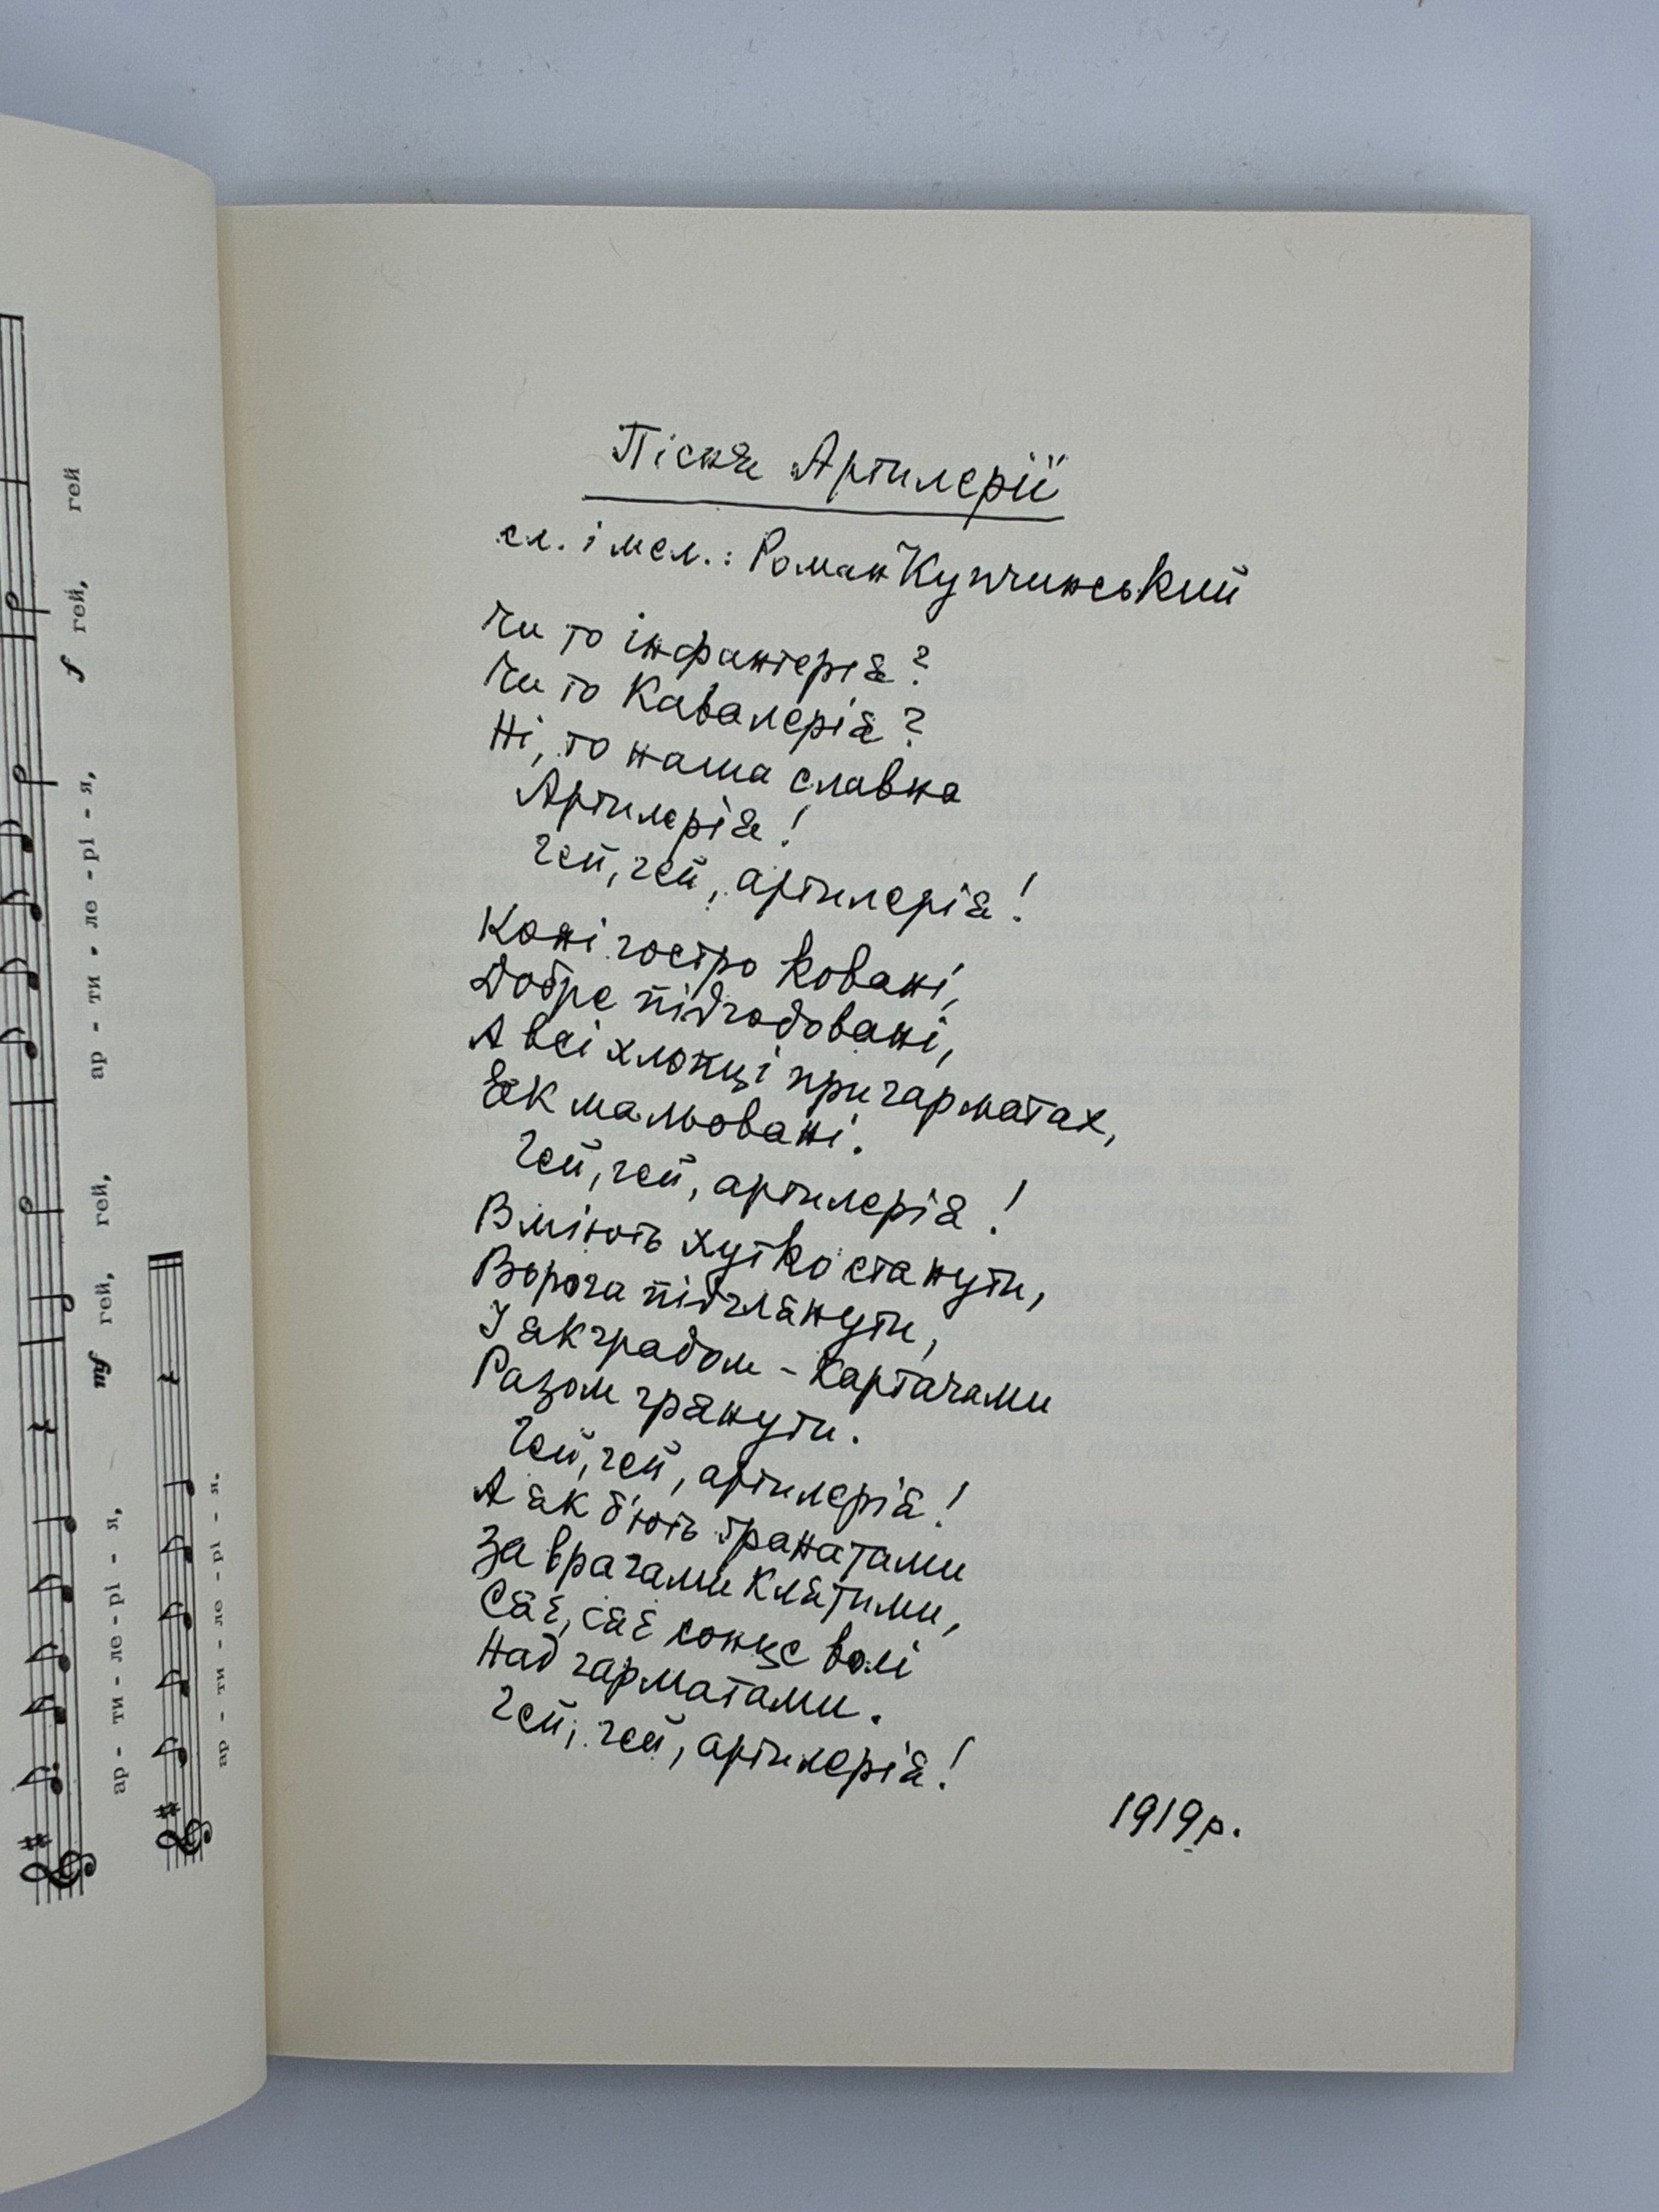 Пісня Артилерії
сл. і мел.: Роман Купчинський
Чи то інфантерія?
Чи то Кавалерія?
Ні, то наша славна
Артилерія!
Гей, гей, артилерія!
Коні гостро ковані,
Добре підгодовані,
А всі хлопці при гарматах,
Як мальовані.
Гей, гей, артилерія!
Вміють хутко станути,
Ворога підглянути,
І як градом - картачами
Разом грянути.
Гей, гей, артилерія!
А як б'ють ґранатами
За врагами клятими,
Сяє, сяє сонце волі
Над гарматами.
Гей, гей, артилерія!
1919 р.
f гей, гей
ар - ти - ле - рі - я,
mf гей, гей,
ар - ти - ле - рі - я,
ар - ти - ле - рі - я.